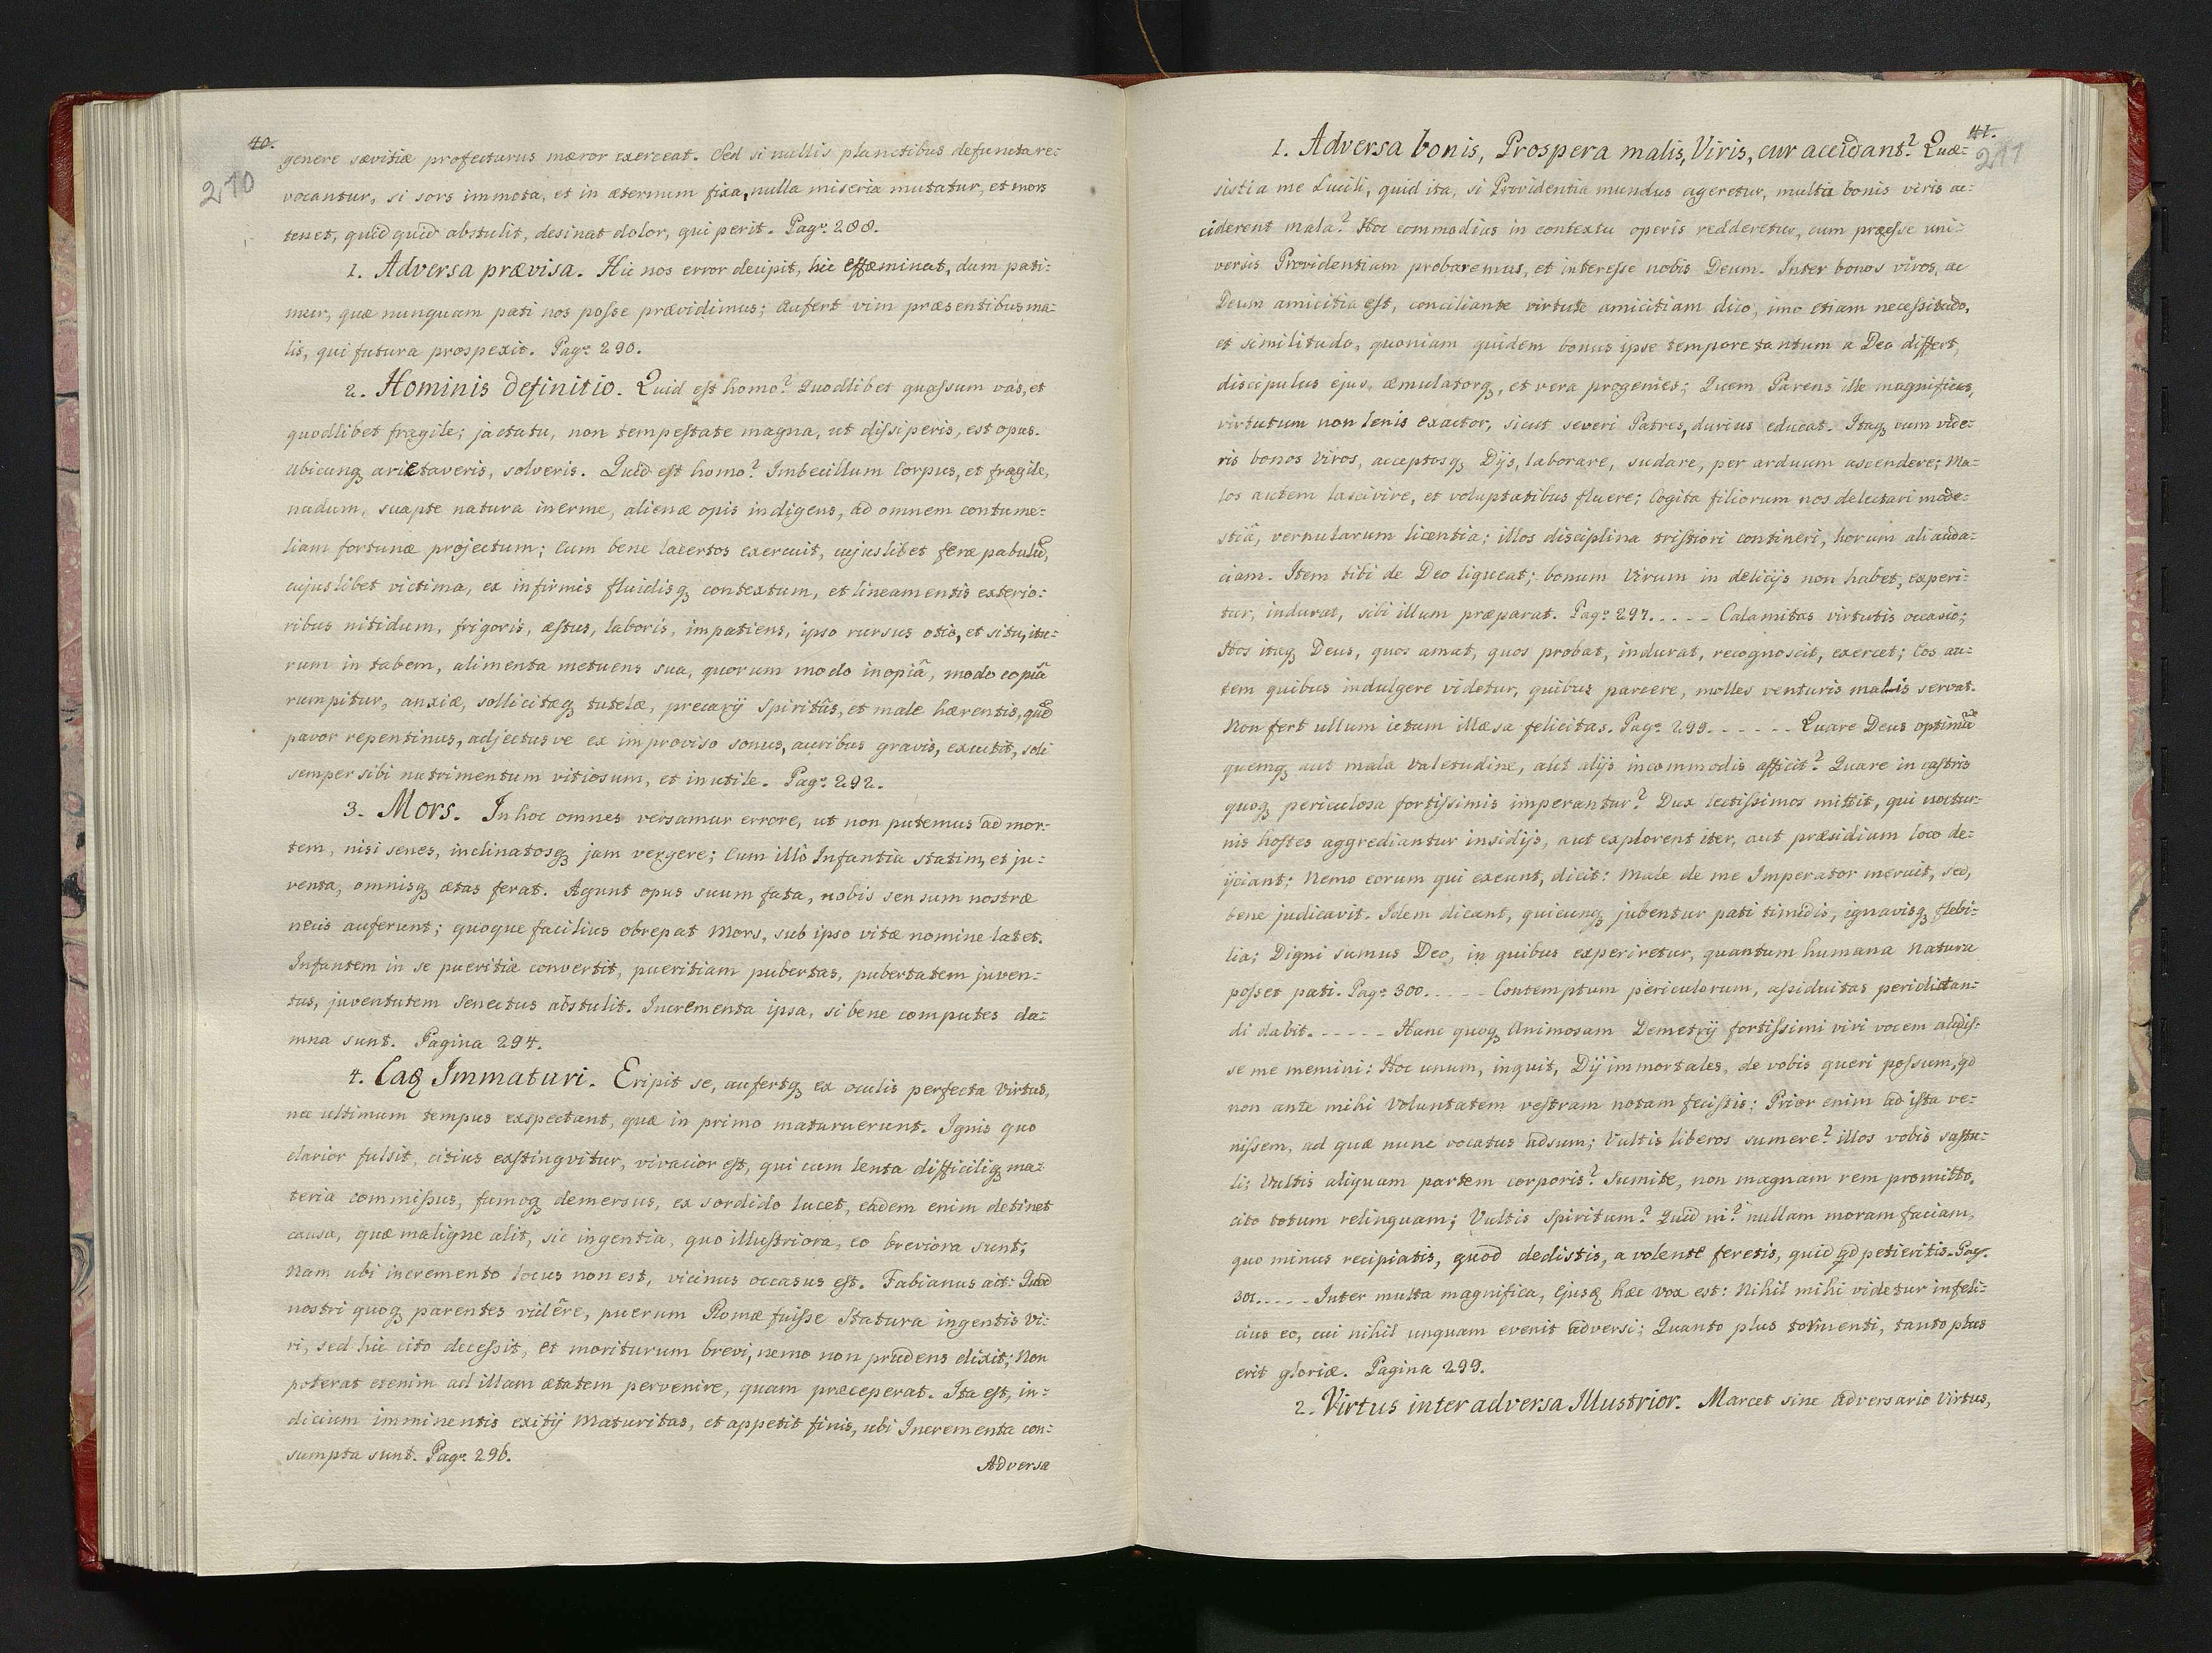 40.
210
genere sævitiæ profecturus mæror exerceat. Sed si nullis planctibus defuncta re:
vocantur, si sors immota, et in æternum fixa, nulla miseria mutatur, et mors
tenet, quidquid abstulit, desinat dolor, qui perit. Pag: 288.
1. Adversa prævisa. Hic nos error decipit, hic effæminat, dum pati:
mur, quæ nunquam pati nos posse prævidimus; Aufert vim præsentibus ma:
lis, qui futura prospexit. Pag: 290.
2. Hominis definitio. Quid est homo? Quodlibet quassum vas, et
quodlibet fragile; jactatu, non tempestate magna, ut dissiperis, est opus.
ubicunq arietaveris, solveris. Quid est homo? Imbecillum Corpus, et fragile,
nudum, suapte natura inerme, alienæ opis indigens, ad omnem contume:
liam fortunæ projectum; Cum bene lacertos exercuit, cujuslibet feræ pabulũ,
cujuslibet victima, ex infirmis fluidisq contextum, et lineamentis exterio:
ribus nitidum, frigoris, æstus, laboris, impatiens, ipso rursus otio, et situ, itu:
rum in tabem, alimenta metuens sua, quorum modo inopiâ, modo copiâ
rumpitur, anxiæ, sollicitæq tutelæ, precarij Spiritûs, et male hærentis, quẽ
pavor repentinus, adjectusve ex improviso sonus, auribus gravis, excutit, soli
semper sibi nutrimentum vitiosum, et inutile. Pag: 292.
3. Mors. In hoc omnes versamur errore, ut non putemus ad mor:
tem, nisi senes, inclinatosq jam vergere; Cum illò Infantia statim, et ju:
venta, omnisq ætas ferat. Agunt opus suum fata, nobis sensum nostræ
necis auferunt; quoque facilius obrepat Mors, sub ipso vitæ nomine latet.
Infantem in se pueritia convertit, pueritiam pubertas, pubertatem juven:
tus, juventutem Senectus abstulit. Incrementa ipsa, si bene computes da:
mna sunt. Pagina 294.
4. Caq Immaturi. Eripit se, aufertq ex oculis perfecta Virtus,
nec ultimum tempus exspectant, quæ in primo maturuerunt. Ignis quo
clarior fulsit, citius exstingvitur, vivacior est, qui cum lenta difficiliq ma:
teria commissus, fumoq demersus, ex sordido lucet, eadem enim detinet
causa, quæ maligne alit, sic ingentia, quo illustriora, eo breviora sunt;
Nam ubi incremento locus non est, vicinus occasus est. Fabianus ait: Quod
nostri quoq parentes vidêre, puerum Romæ fuisse Statura ingentis Vi:
ri, sed hic cito decessit, et moriturum brevi, nemo non prudens dixit; Non
poterat etenim ad illam ætatem pervenire, quam præceperat. Ita est, in:
dicium imminentis exitij Maturitas, et appetit finis, ubi Incrementa con:
sumpta sunt. Pag: 296.
Adversa
41.
211
1. Adversa bonis, Prospera malis, Viris, cur accidant? Quæ:
sisti a me Lucili, quid ita, si Providentia mundus ageretur, multa bonis viris ac:
ciderent mala? Hoc commodius in contextu operis redderetur, cum præesse uni:
versis Providentiam probaremus, et interesse nobis Deum. Inter bonos viros, ac
Deum amicitia est, conciliante virtute amicitiam dico, imo etiam necessitudo,
et similitudo, quoniam quidem bonus ipse tempore tantum a Deo differt,
discipulus ejus, æmulatorq, et vera progenies; Quem Parens ille magnificus,
virtutum non lenis exactor, sicut severi Patres, durius educat. Itaq cum vide:
ris bonos Viros, acceptosq Dijs, laborare, sudare, per arduum ascendere; Ma:
los autem lascivire, et voluptatibus fluere; Cogita filiorum nos delectari mode:
stiâ, vernularum licentia; illos disciplina tristiori contineri, horum ali auda:
ciam. Item tibi de Deo liqueat; bonum Virum in delicijs non habet, experi:
tur, indurat, sibi illum præparat. Pag: 297. - - - - Calamitas virtutis occasio;
Hos itaq Deus, quos amat, quos probat, indurat, recognoscit, exercet; Eos au:
tem quibus indulgere videtur, quibus parcere, molles venturis malis servat.
Non fert ullum ictum illæsa felicitas. Pag: 299. - - - - - Quare Deus optimũ
quemq aut mala Valetudine, aut alijs incommodis afficit? Quare in castris
quoq periculosa fortissimis imperantur? Dux lectissimos mittit, qui noctur:
nis hostes aggrediantur insidijs, aut explorent iter, aut præsidium loco de:
ijciant: Nemo eorum qui exeunt, dicit: Male de me Imperator meruit, sed,
bene judicavit. Idem dicant, quicunq jubentur pati timidis, ignavisq flebi:
lia; Digni sumus Deo, in quibus experiretur, quantum humana Natura
posset pati. Pag: 300. - - - - Contemptum periculorum, assiduitas periclitan:
di dabit. - - - - - Hanc quoq Animosam Demetrij fortissimi viri vocem audis:
se me memini: Hoc unum, inquit, Dij immortales, de vobis queri possum, qd
non ante mihi Voluntatem vestram notam fecistis; Prior enim ad ista ve:
nissem, ad quæ nunc vocatus adsum; Vultis liberos sumere? illos vobis sustu:
li; Vultis aliquam partem corporis? Sumite, non magnam rem promitto,
cito totum relinquam; Vultis Spiritum? Quid ni? nullam moram faciam,
quo minus recipiatis, quod dedistis, a volente feretis, quid qd petieritis. Pag:
301. - - - - Inter multa magnifica, Ejusq hæc vox est: Nihil mihi videtur infeli:
cius eo, cui nihil unquam evenit adversi; Quanto plus tormenti, tanto plus
erit gloriæ. Pagina 299.
2. Virtus inter adversa Illustrior. Marcet sine adversario Virtus,